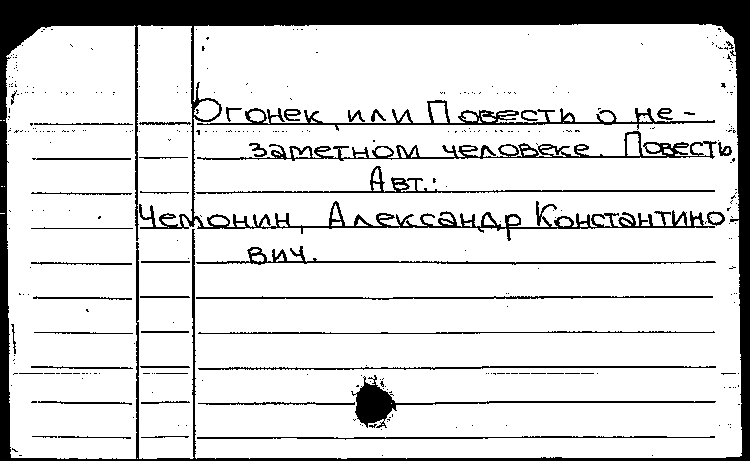 Огонек, или Повесть о не-
заметном человеке. Повесть.
Авт.:
Чемонин, Александр Константино-
вич.